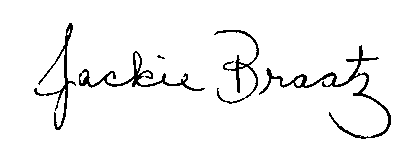 Jackie Braatz